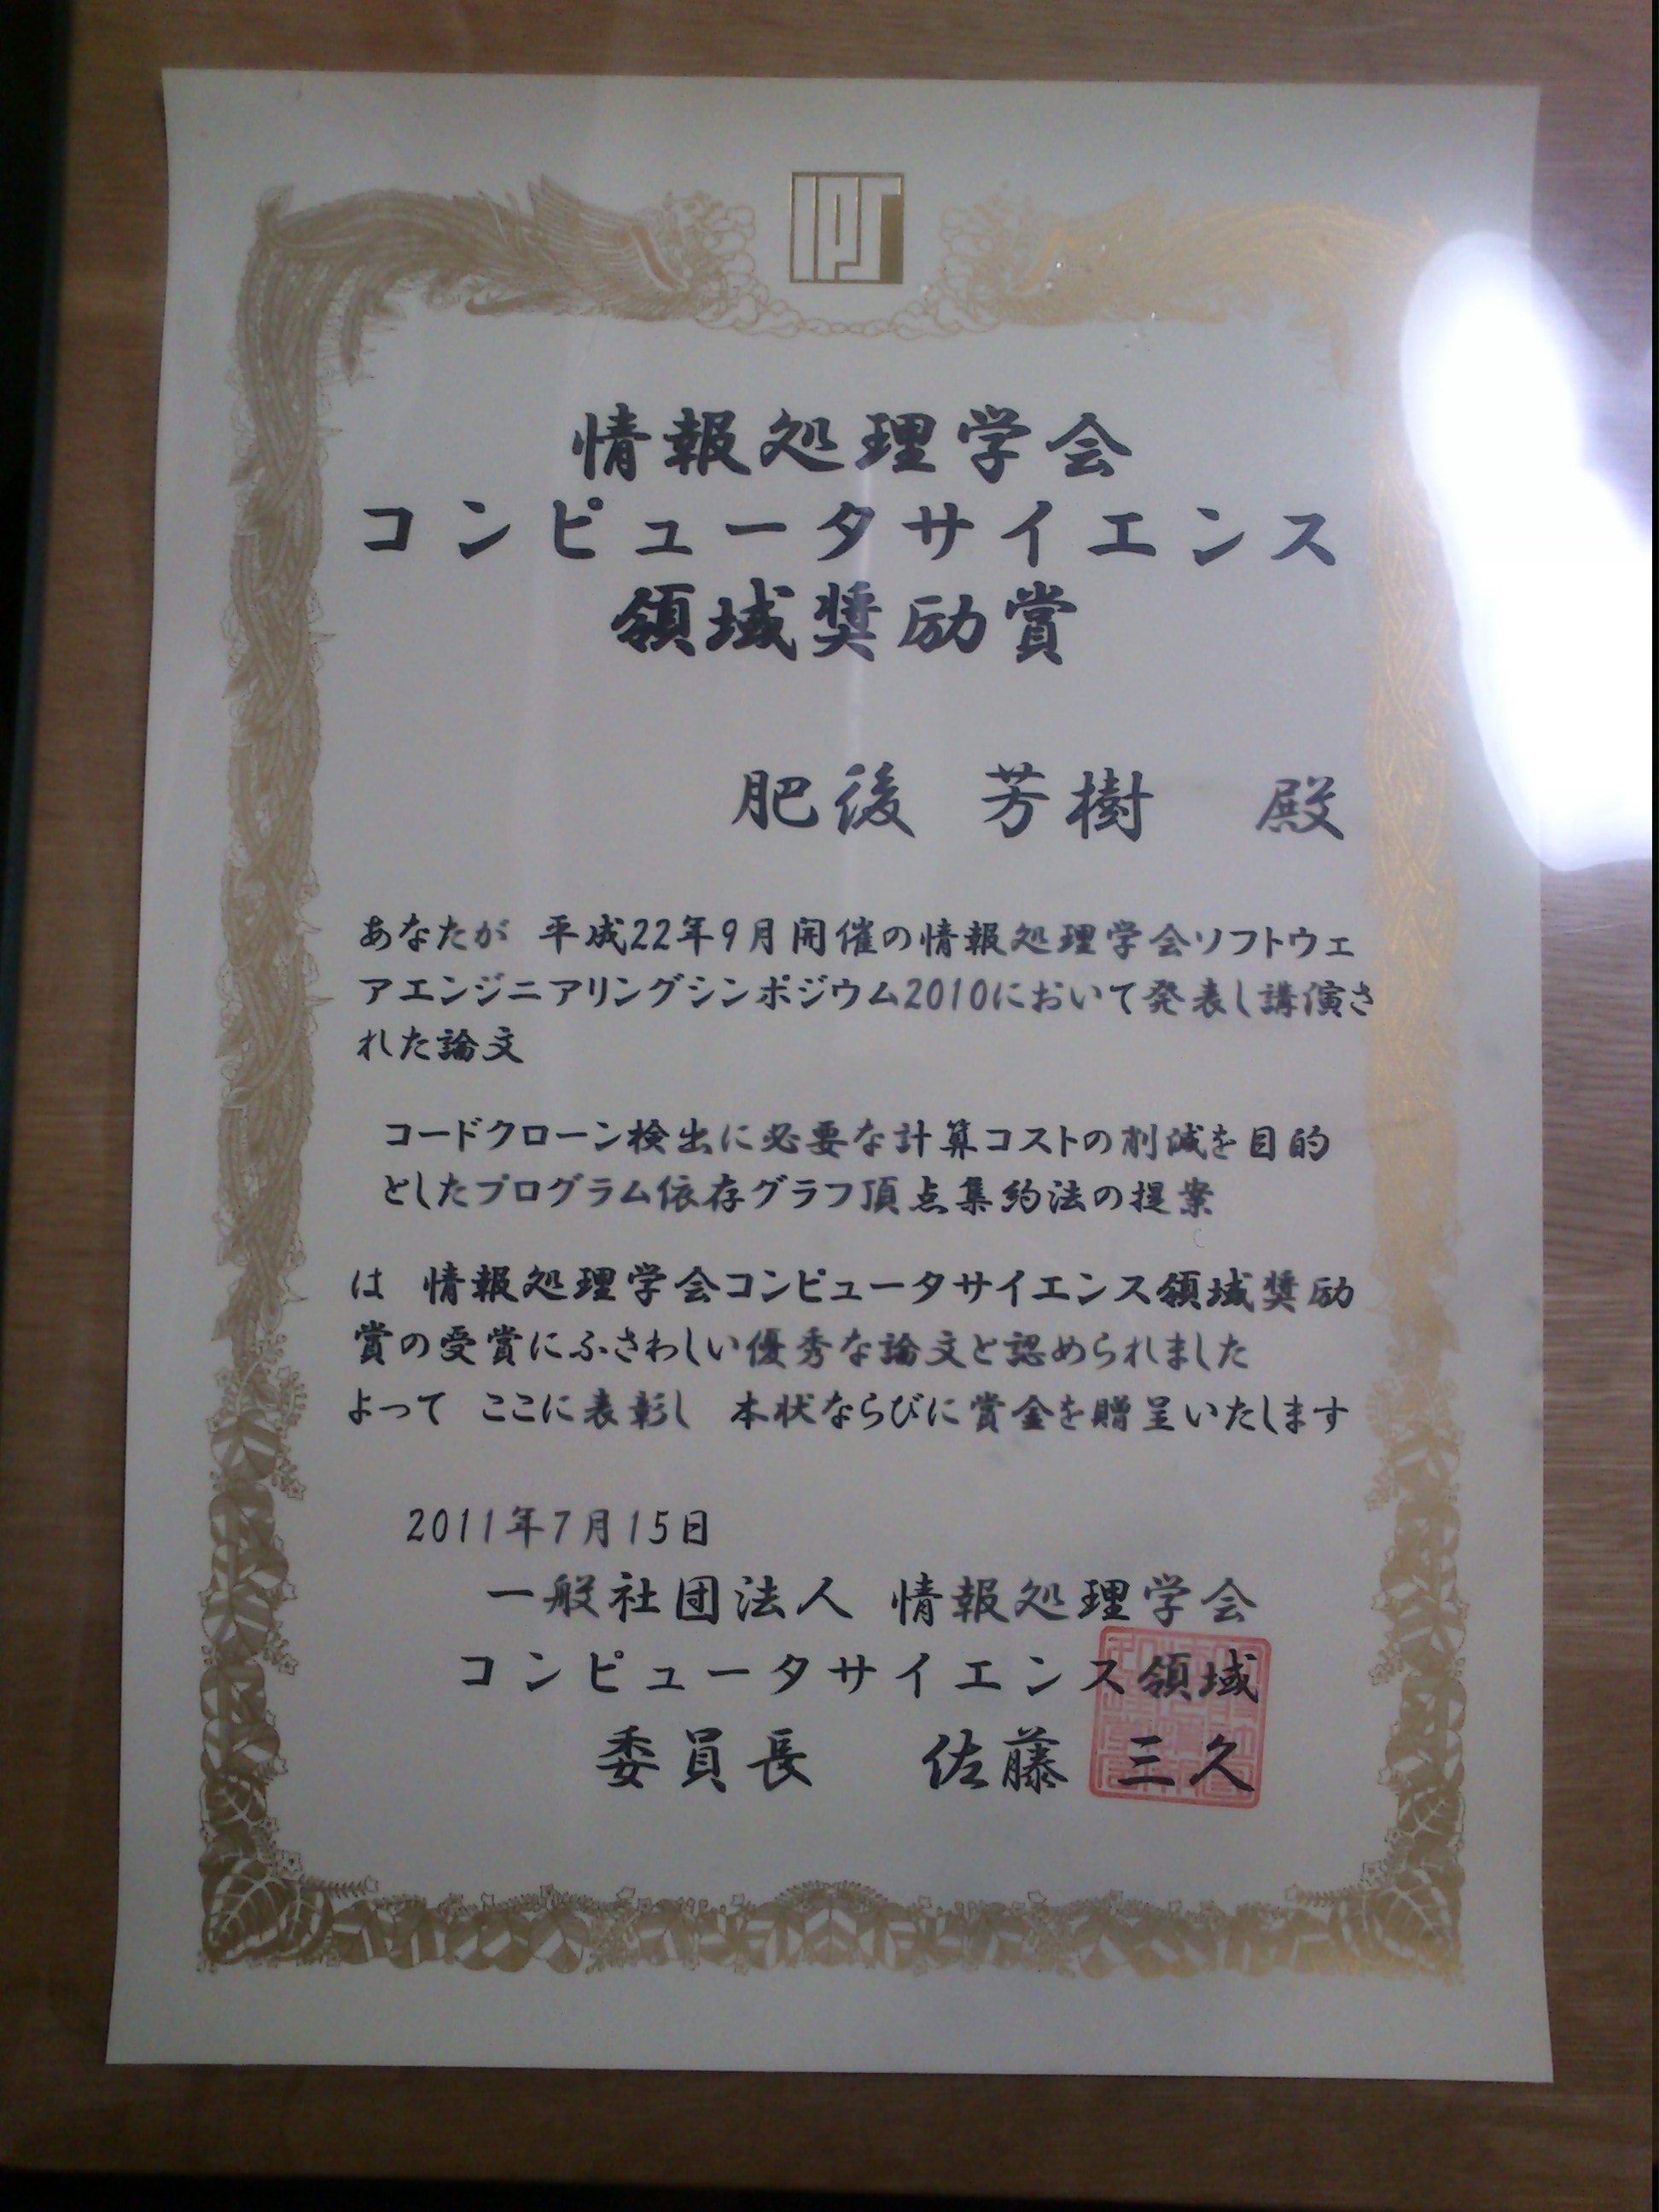 IPSJ
情報処理学会
コンピュータサイエンス
領域奨励賞
肥後 芳樹 殿
あなたが 平成22年9月開催の情報処理学会ソフトウェ
アエンジニアリングシンポジウム2010において発表し講演さ
れた論文
コードクローン検出に必要な計算コストの削減を目的
としたプログラム依存グラフ頂点集約法の提案
は 情報処理学会コンピュータサイエンス領域奨励
賞の受賞にふさわしい優秀な論文と認められました
よって ここに表彰し 本状ならびに賞金を贈呈いたします
2011年7月15日
一般社団法人 情報処理学会
コンピュータサイエンス領域
委員長 佐藤 三久